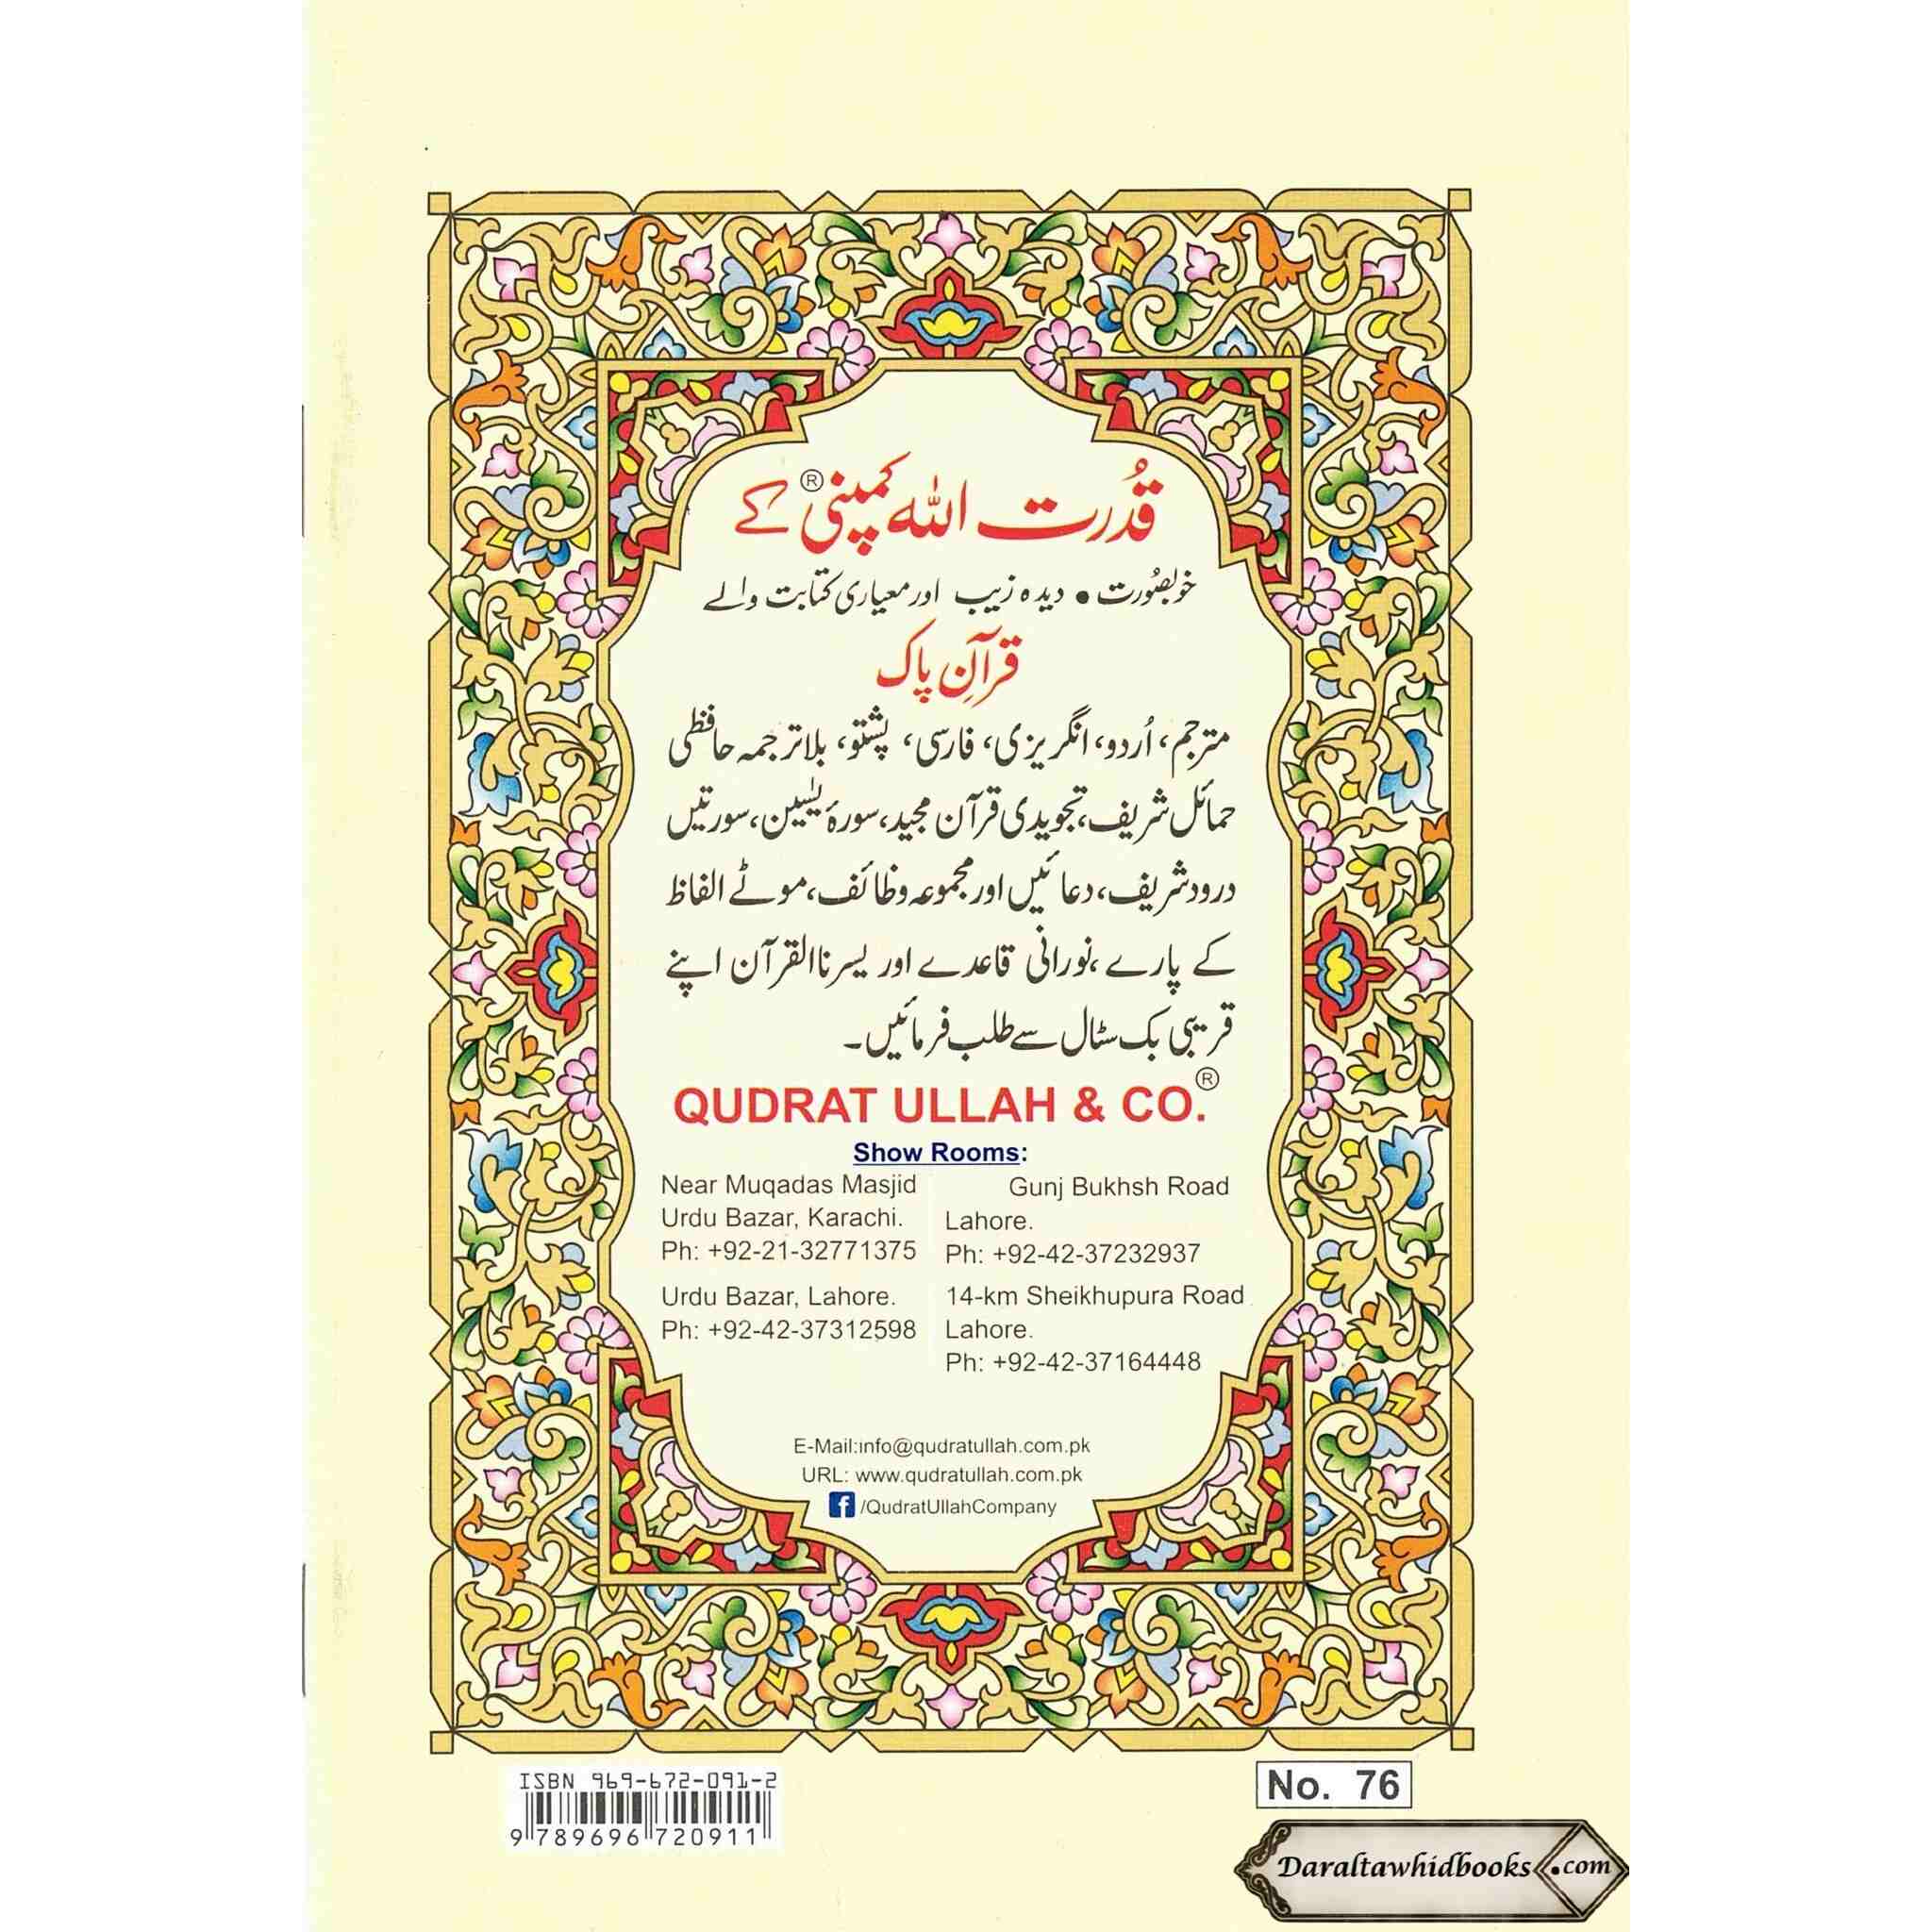 قُدرت اللہ کمپنی® کے
خوبصُورت • دیدہ زیب اور معیاری کتابت والے
قرآنِ پاک
مترجم، اُردو، انگریزی، فارسی، پشتو، بلاترجمہ حافظی
حمائل شریف، تجویدی قرآن مجید، سورۂ یٰسیین، سورتیں
درود شریف، دعائیں اور مجموعہ وظائف، موٹے الفاظ
کے پارے، نورانی قاعدے اور یسرناالقرآن اپنے
قریبی بک سٹال سے طلب فرمائیں۔
QUDRAT ULLAH & CO.®
Show Rooms:
Near Muqadas Masjid
Urdu Bazar, Karachi.
Ph: +92-21-32771375
Urdu Bazar, Lahore.
Ph: +92-42-37312598
Gunj Bukhsh Road
Lahore.
Ph: +92-42-37232937
14-km Sheikhupura Road
Lahore.
Ph: +92-42-37164448
E-Mail:info@qudratullah.com.pk
URL: www.qudratullah.com.pk
f /QudratUllahCompany
ISBN 969-672-091-2
9 789696 720911
No. 76
Daraltawhidbooks.com